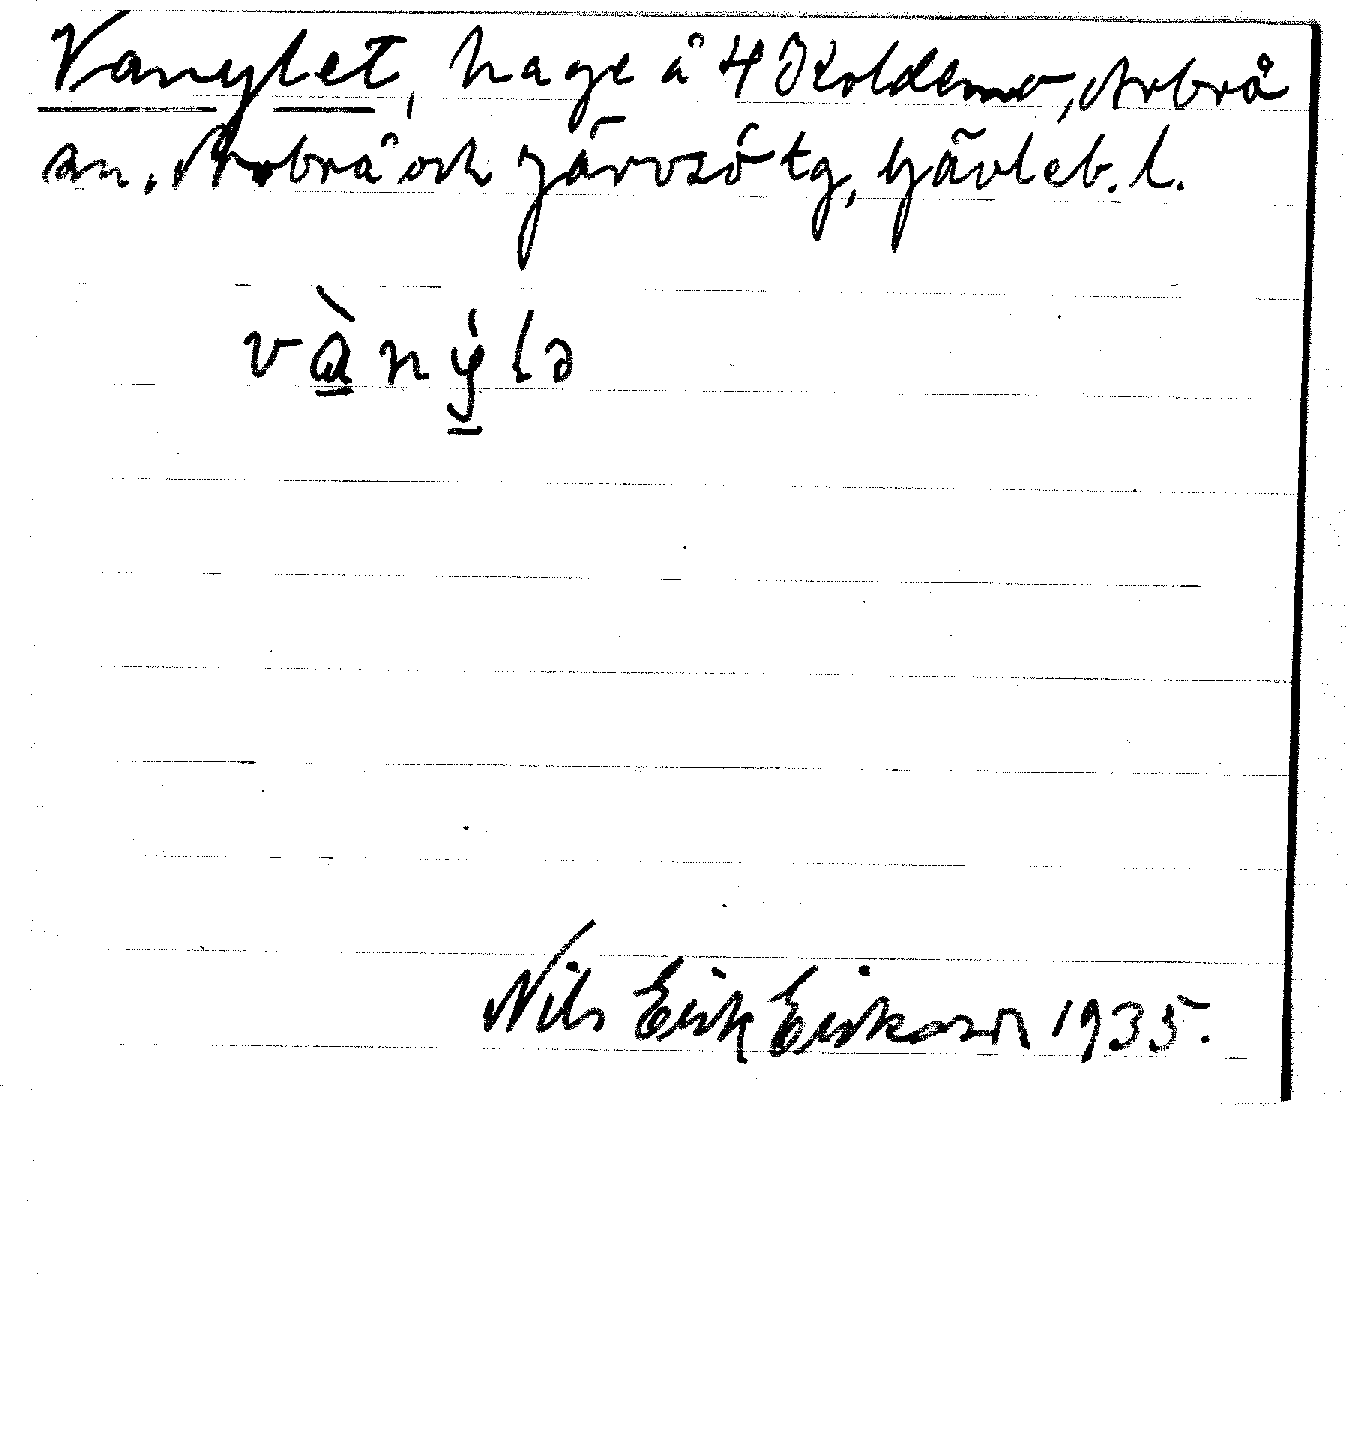 Vanylet, hage å 4 Koldemo, Arbrå
sn. Arbrå och Järvsö tg, Gävleb. l.
vànylə
Nils Erik Eriksson 1935.